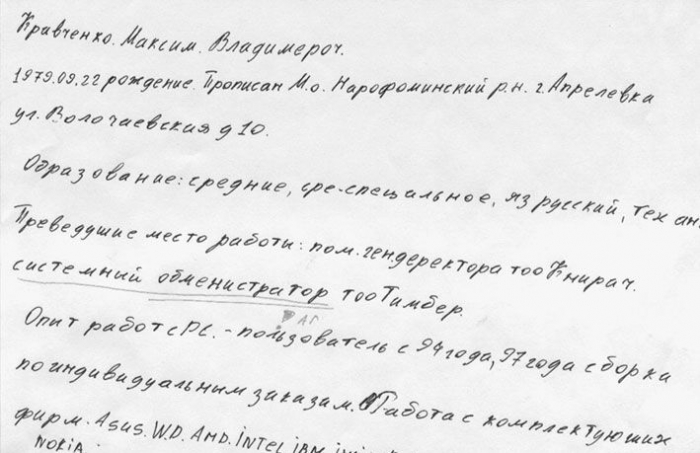 Кравченко. Максим. Владимероч.
1979.09.22 рождение. Прописан М.о. Нарофоминский р.н. г. Апрелевка
ул. Волочаевская д 10.
Образование: средние, сре-специальное, яз русский, тех ан.
Преведушие место работи: пом. гендеректора тоо Книрач.
системний обменистратор тоо Тимбер.
Опит работ с PC. - пользователь с 94 года, 97 года сборка
по индивидуальним заказам. Работа с комплектующих
фирм. ASUS. W.D. AMD. İNTEL İBM
NOKİA.